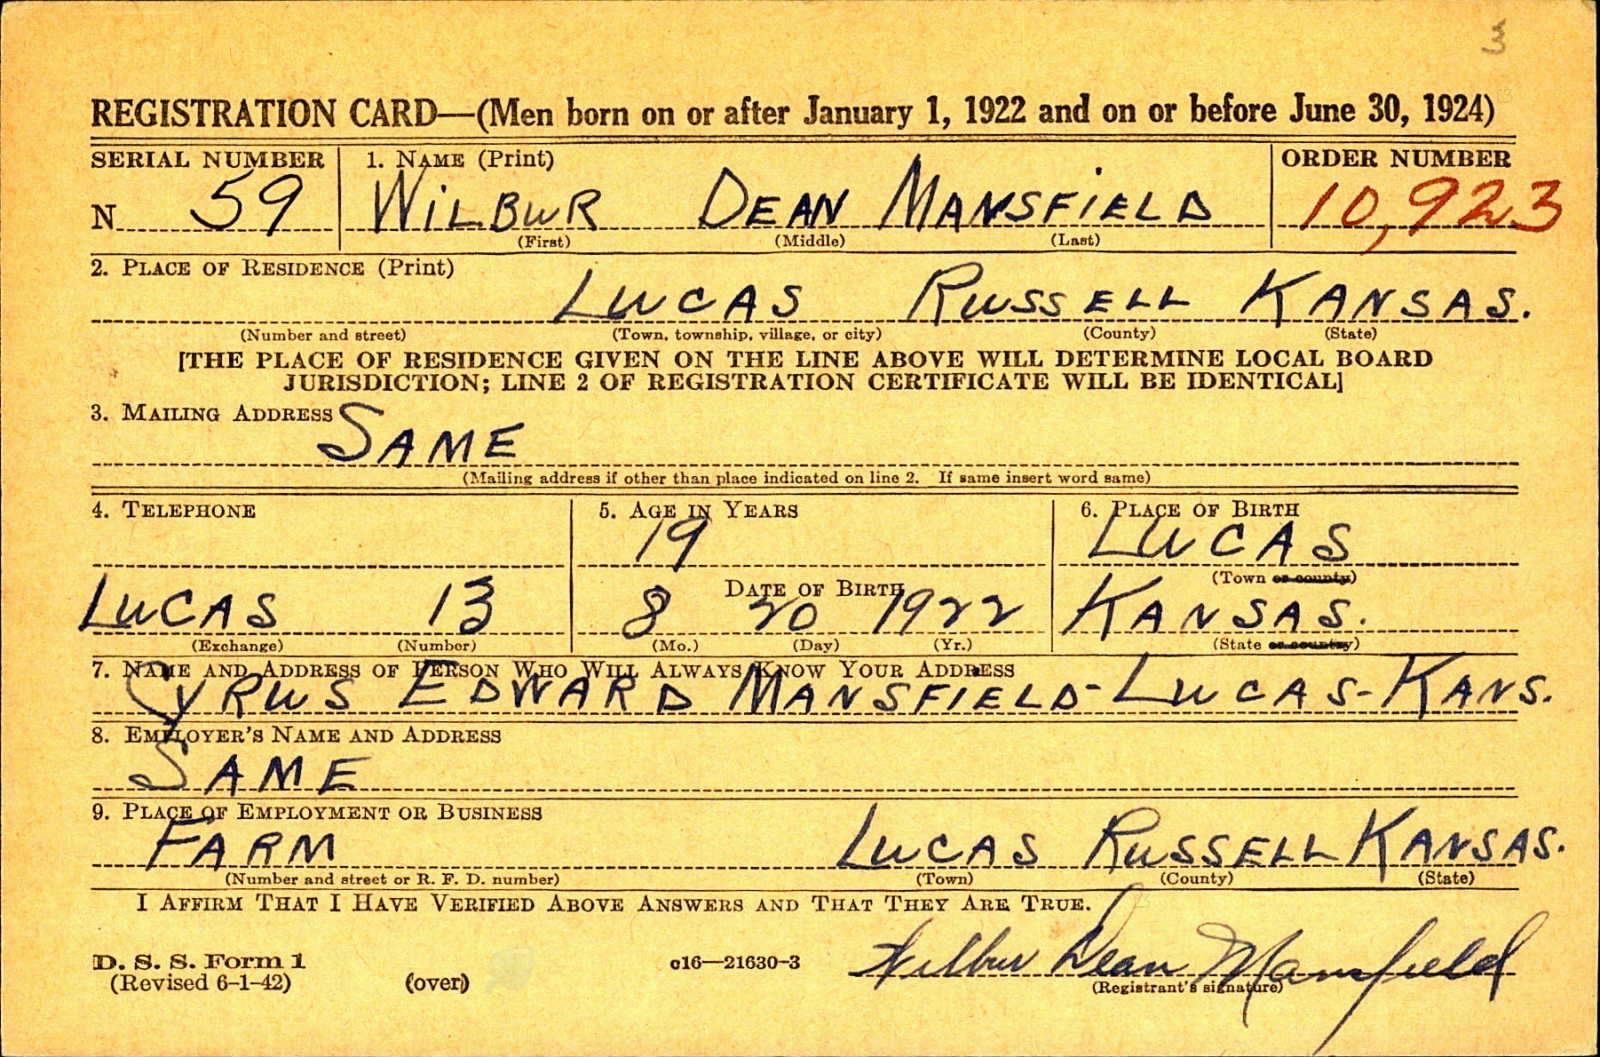 3
REGISTRATION CARD—(Men born on or after January 1, 1922 and on or before June 30, 1924)
SERIAL NUMBER 1. NAME (Print) ORDER NUMBER
N 59 WILBUR DEAN MANSFIELD 10,923
(First) (Middle) (Last)
2. PLACE OF RESIDENCE (Print)
LUCAS RUSSELL KANSAS.
(Number and street) (Town, township, village, or city) (County) (State)
[THE PLACE OF RESIDENCE GIVEN ON THE LINE ABOVE WILL DETERMINE LOCAL BOARD
JURISDICTION; LINE 2 OF REGISTRATION CERTIFICATE WILL BE IDENTICAL]
3. MAILING ADDRESS
SAME
(Mailing address if other than place indicated on line 2. If same insert word same)
4. TELEPHONE 5. AGE IN YEARS 6. PLACE OF BIRTH
19 LUCAS
DATE OF BIRTH (Town or county)
LUCAS 13 8 20 1922 KANSAS.
(Exchange) (Number) (Mo.) (Day) (Yr.) (State or country)
7. NAME AND ADDRESS OF PERSON WHO WILL ALWAYS KNOW YOUR ADDRESS
CYRUS EDWARD MANSFIELD-LUCAS-KANS.
8. EMPLOYER'S NAME AND ADDRESS
SAME
9. PLACE OF EMPLOYMENT OR BUSINESS
FARM LUCAS RUSSELL KANSAS.
(Number and street or R. F. D. number) (Town) (County) (State)
I AFFIRM THAT I HAVE VERIFIED ABOVE ANSWERS AND THAT THEY ARE TRUE.
D. S. S. Form 1 c16—21630-3 Wilbur Dean Mansfield
(Revised 6-1-42) (over) (Registrant's signature)